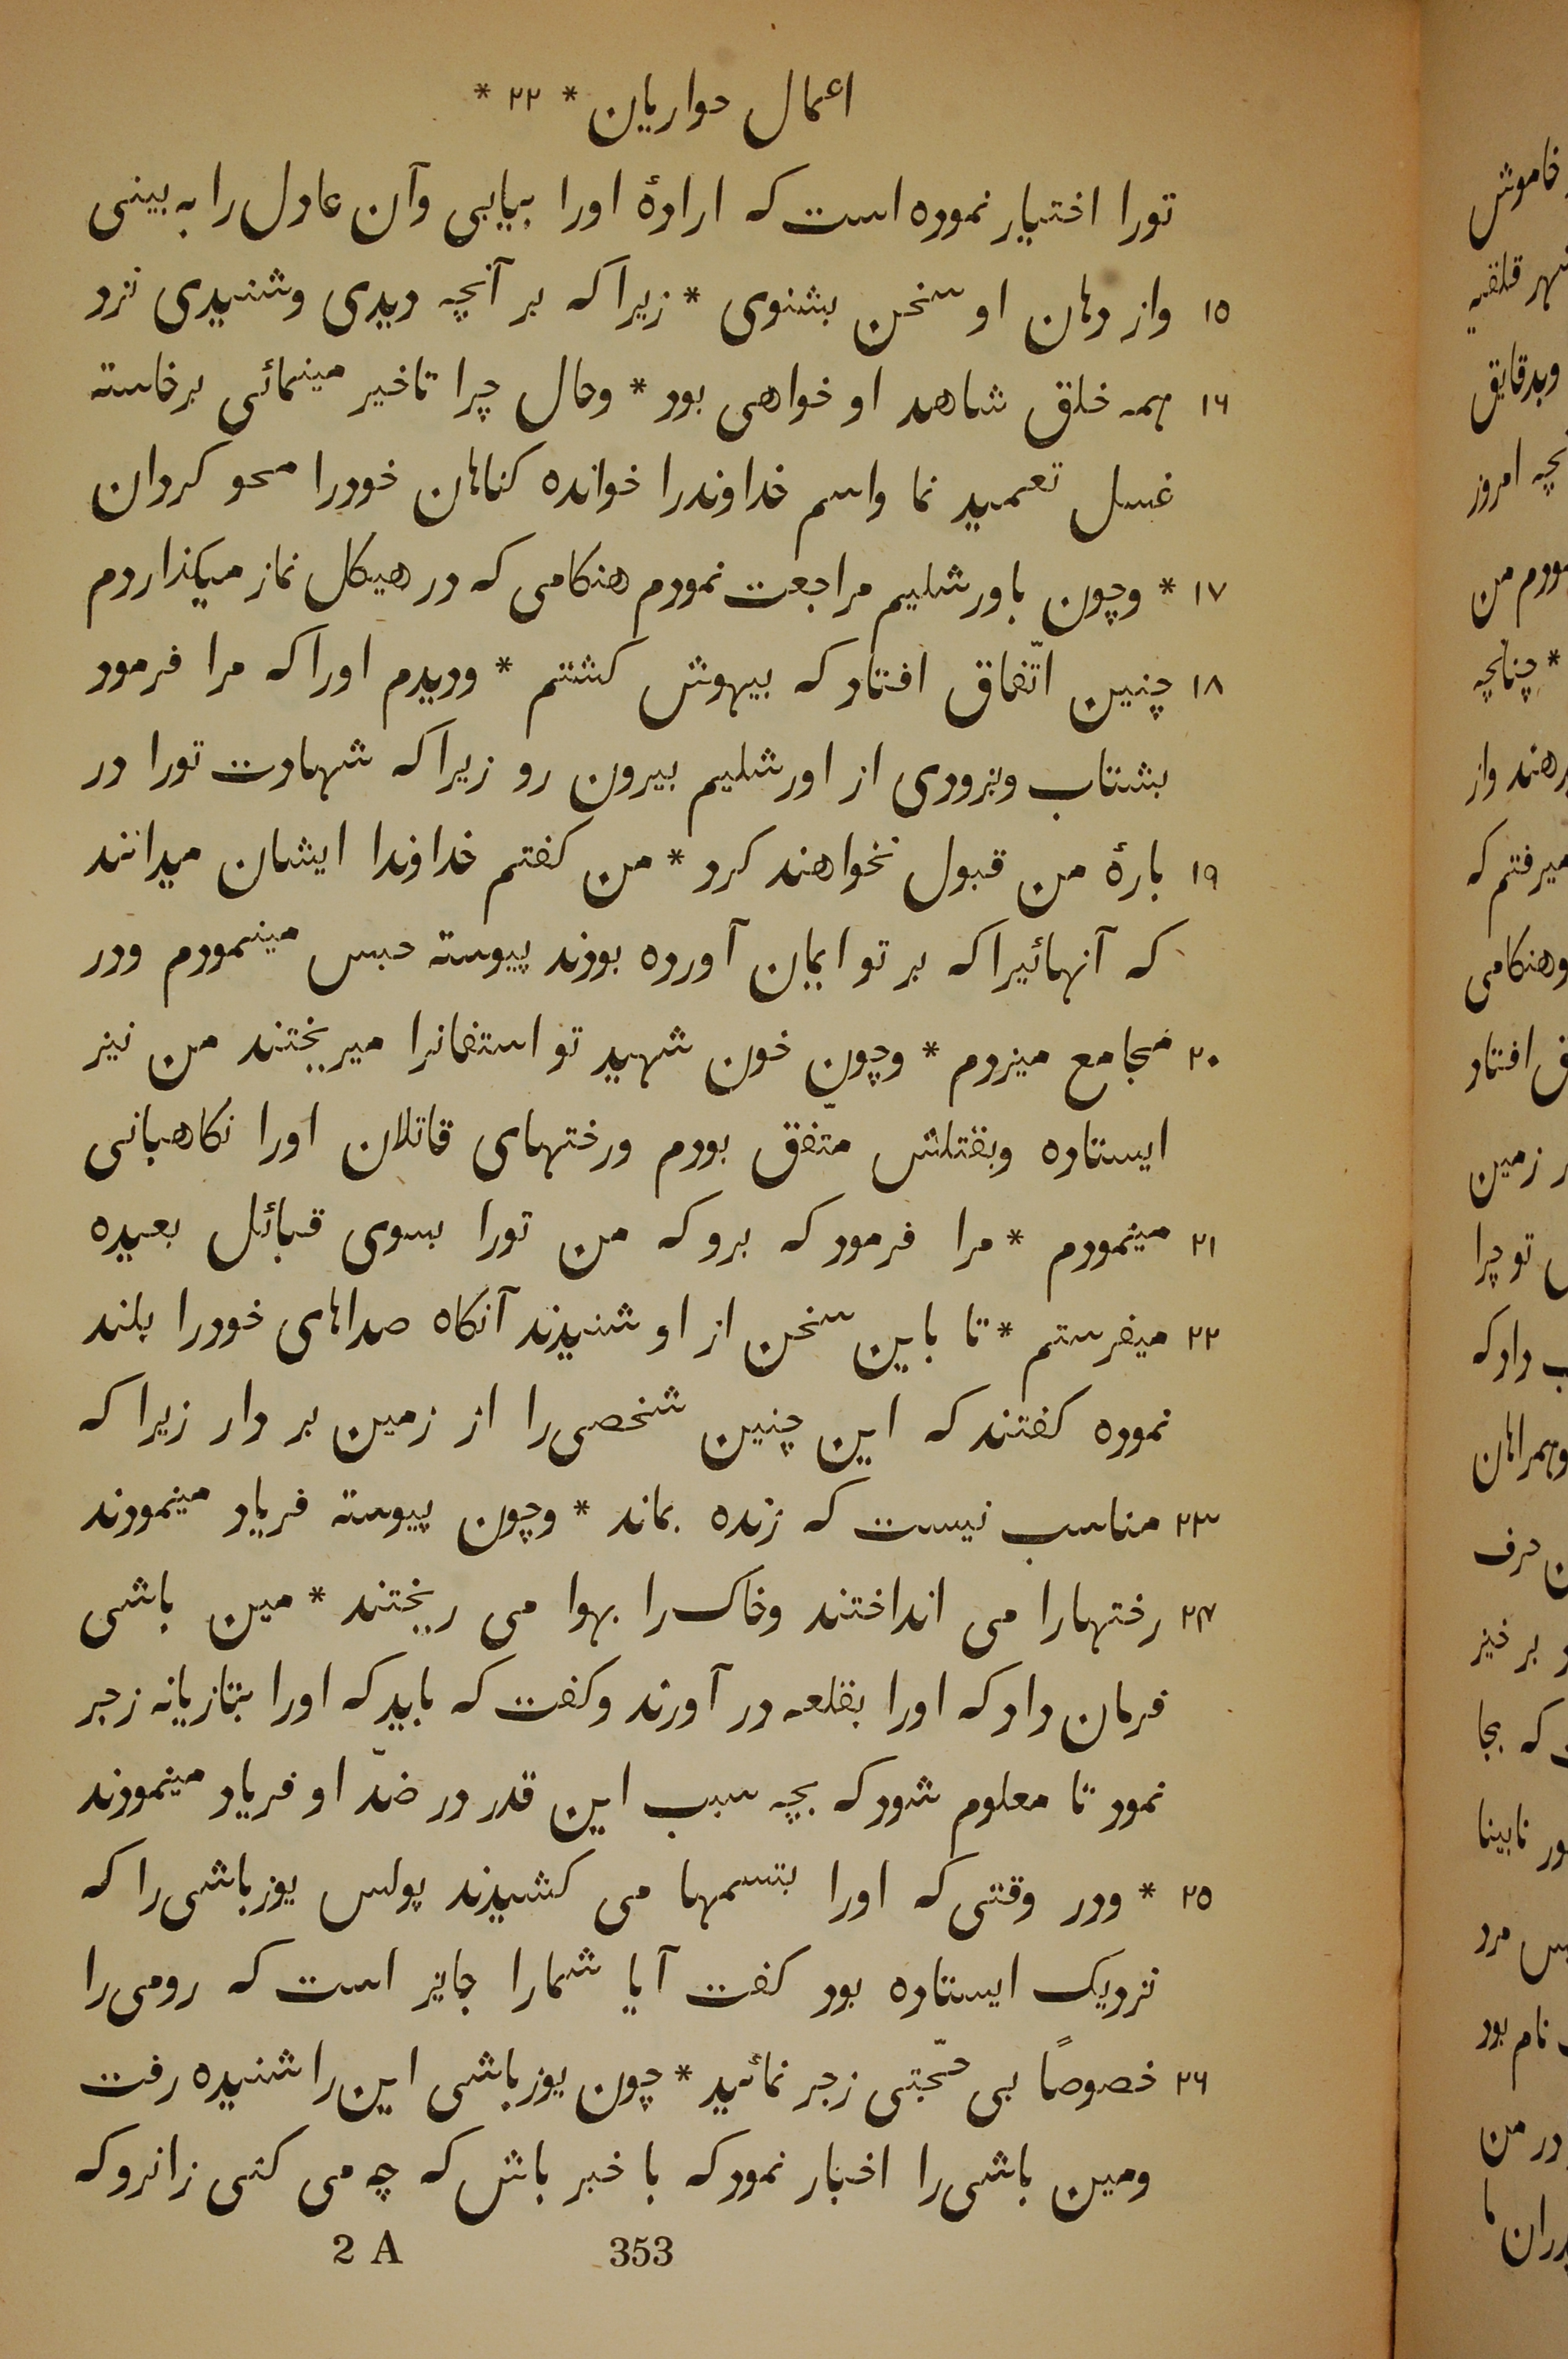 اعمال حواریان * ۲۲ *
تورا اختیار نموده است که ارادهٔ اورا بیابی وآن عادل را به بینی
۱۵ واز دهان او سخن بشنوی * زیرا که بر آنچه دیدی وشنیدی نزد
۱۶ همه خلق شاهد او خواهی بود * وحال چرا تاخیر مینمائی برخاسته
غسل تعمید نما واسم خداوندرا خوانده کناهان خودرا محو کردان
۱۷ * وچون باورشلیم مراجعت نمودم هنکامی که در هیکل نماز میکذاردم
۱۸ چنین اتّفاق افتاد که بیهوش کشتم * ودیدم اورا که مرا فرمود
بشتاب وبزودی از اورشلیم بیرون رو زیرا که شهادت تورا در
۱۹ بارهٔ من قبول نخواهند کرد * من کفتم خداوندا ایشان میدانند
که آنهائیرا که بر تو ایمان آورده بودند پیوسته حبس مینمودم ودر
۲۰ مجامع میزدم * وچون خون شهید تو استفانرا میریختند من نیز
ایستاده وبقتلش متّفق بودم ورختهای قاتلان اورا نکاهبانی
۲۱ مینمودم * مرا فرمود که برو که من تورا بسوی قبائل بعیده
۲۲ میفرستم * تا باین سخن از او شنیدند آنکاه صداهای خودرا بلند
نموده کفتند که این چنین شخصی را از زمین بر دار زیرا که
۲۳ مناسب نیست که زنده بماند * وچون پیوسته فریاد مینمودند
۲۴ رختهارا می انداختند وخاک را بهوا می ریختند * مین باشی
فرمان داد که اورا بقلعه در آورند وکفت که باید که اورا بتازیانه زجر
نمود تا معلوم شود که بچه سبب این قدر در ضدّ او فریاد مینمودند
۲۵ * ودر وقتی که اورا بتسمها می کشیدند پولس یوزباشی را که
نزدیک ایستاده بود کفت آیا شمارا جایز است که رومی را
۲۶ خصوصًا بی حجّتی زجر نمائید * چون یوزباشی این را شنیده رفت
ومین باشی را اخبار نمود که با خبر باش که چه می کنی زانرو که
2 A 353
خاموش
شهر قلقیه
وبدقایق
امروز
من
* چنانچه
واز
میرفتم که
وهنکامی
افتاد
زمین
تو چرا
داد که
وهمراهان
حرف
بر خیز
که بجا
نابینا
مرد
نام بود
در من